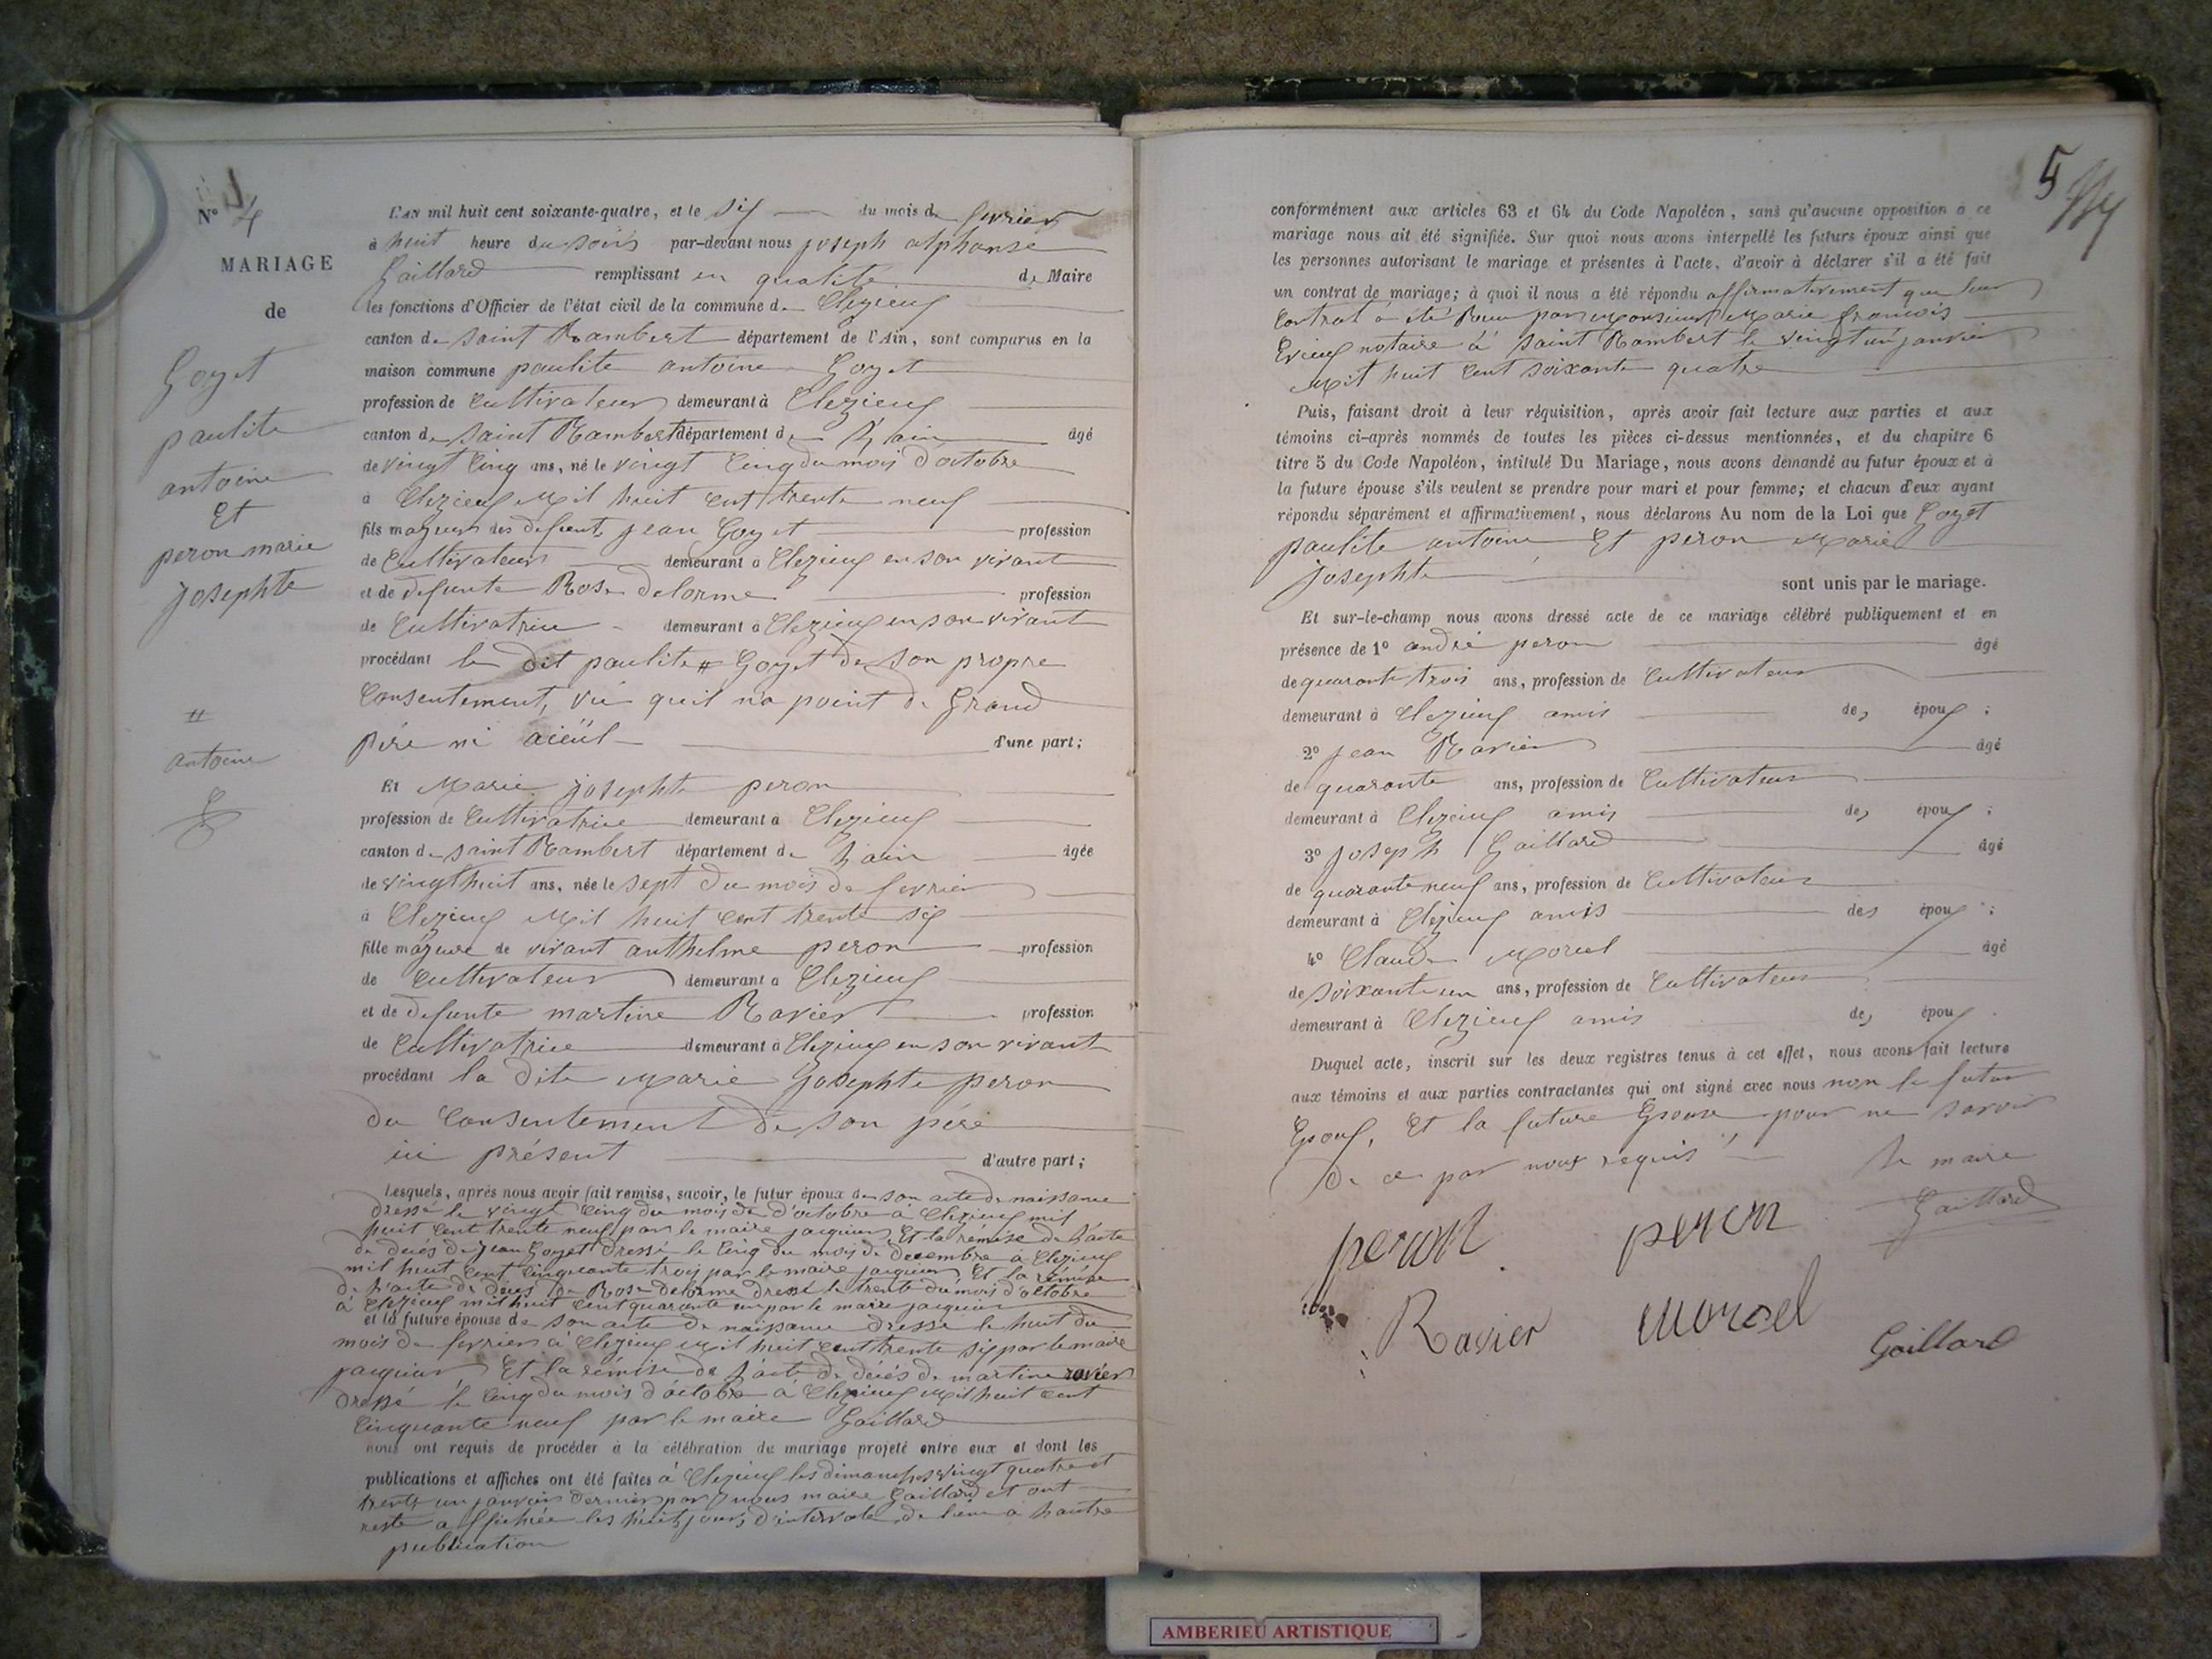 N° 4
MARIAGE
de
Goyet
paulite
antoine
Et
peron marie
josephte
#
antoine
L'AN mil huit cent soixante-quatre, et le six du mois de fevrier
à huit heure du soirs par-devant nous joseph alphonse
Gaillard remplissant en qualité de Maire
les fonctions d'Officier de l'état civil de la commune de Clezieux
canton de saint Rambert département de l'Ain, sont comparus en la
maison commune paulite antoine Goyet
profession de Cultivateur demeurant à Clezieux
canton de saint Rambert département de L'ain âgé
de vingt Cinq ans, né le vingt Cinq du mois d'octobre
à Clezieux Mil huit cent trente neuf
fils majeur des defunt jean Goyet profession
de Cultivateur demeurant à Clezieux en son vivant
et de defunte Rose delorme profession
de Cultivatrice demeurant à Clezieux en son vivant
procédant le dit paulite # Goyet de son propre
Consentement, vu quil n'a point de Grand
père ni aieül d'une part;
Et Marie josephte peron
profession de Cultivatrice demeurant à Clezieux
canton de saint Rambert département de L'ain âgée
de vingt huit ans, née le sept du mois de fevrier
à Clezieux Mil huit cent trente six
fille majeure de vivant anthelme peron profession
de Cultivateur demeurant à Clezieux
et de defunte martine Ravier profession
de Cultivatrice demeurant à Clezieux en son vivant
procédant la dite Marie josephte peron
du Consentement de son père
ici présent d'autre part;
Lesquels, après nous avoir fait remise, savoir, le futur époux de son acte de naissance
dressé le vingt Cinq du mois de d'octobre à Clezieux mil
huit cent trente neuf par le maire jacquier Et la rémise de l'acte
de décés de jean Goyet dressé le Cinq du mois de decembre à Clezieux
mil huit cent Cinquante trois par le maire jacquier Et la rémise
de l'acte de décés de Rose delorme dressé le trente du mois d'octobre
à Clezieux mil huit Cent quarante un par le maire jacquier
et la future épouse de son acte de naissance dressé le huit du
mois de fevrier à Clezieux Mil huit Cent trente six par le maire
jacquier Et la rémise de l'acte de décés de martine ravier
dressé le Cinq du mois d'octobre à Clezieux Mil huit cent
Cinquante neuf par le maire Gaillard
nous ont requis de procéder à la célébration du mariage projeté entre eux et dont les
publications et affiches ont été faites à Clezieux les dimanches vingt quatre et
trente un janvier dernier par nous maire Gaillard et ont
resté affichée les huit jours d'intervale de l'une à hautre
publication
5
conformément aux articles 63 et 64 du Code Napoléon, sans qu'aucune opposition à ce
mariage nous ait été signifiée. Sur quoi nous avons interpellé les futurs époux ainsi que
les personnes autorisant le mariage et présentes à l'acte, d'avoir à déclarer s'il a été fait
un contrat de mariage; à quoi il nous a été répondu affirmativement que leur
Contrat a été Recu par Monsieur Marie francois
notaire à saint Rambert le vingt un janvier
Mil huit Cent soixante quatre
Puis, faisant droit à leur réquisition, après avoir fait lecture aux parties et aux
témoins ci-après nommés de toutes les pièces ci-dessus mentionnées, et du chapitre 6
titre 5 du Code Napoléon, intitulé Du Mariage, nous avons demandé au futur époux et à
la future épouse s'ils veulent se prendre pour mari et pour femme; et chacun d'eux ayant
répondu séparément et affirmativement, nous déclarons Au nom de la Loi que Goyet
paulite antoine Et peron Marie
josephte sont unis par le mariage.
Et sur-le-champ nous avons dressé acte de ce mariage célébré publiquement et en
présence de 1° andré peron âgé
de quarante trois ans, profession de Cultivateur
demeurant à Clezieux amis des époux;
2° jean Ravier âgé
de quarante ans, profession de Cultivateur
demeurant à Clezieux amis des époux;
3° joseph Gaillard âgé
de quarante neuf ans, profession de Cultivateur
demeurant à Clezieux amis des époux;
4° Claude Morel âgé
de soixante un ans, profession de Cultivateur
demeurant à Clezieux amis des époux.
Duquel acte, inscrit sur les deux registres tenus à cet effet, nous avons fait lecture
aux témoins et aux parties contractantes qui ont signé avec nous non le futur
Epoux, Et la future Epouse pour ne savoir
de ce par nous requis Le maire
peron peron Gaillard
Ravier morel
Gaillard
AMBERIEU ARTISTIQUE